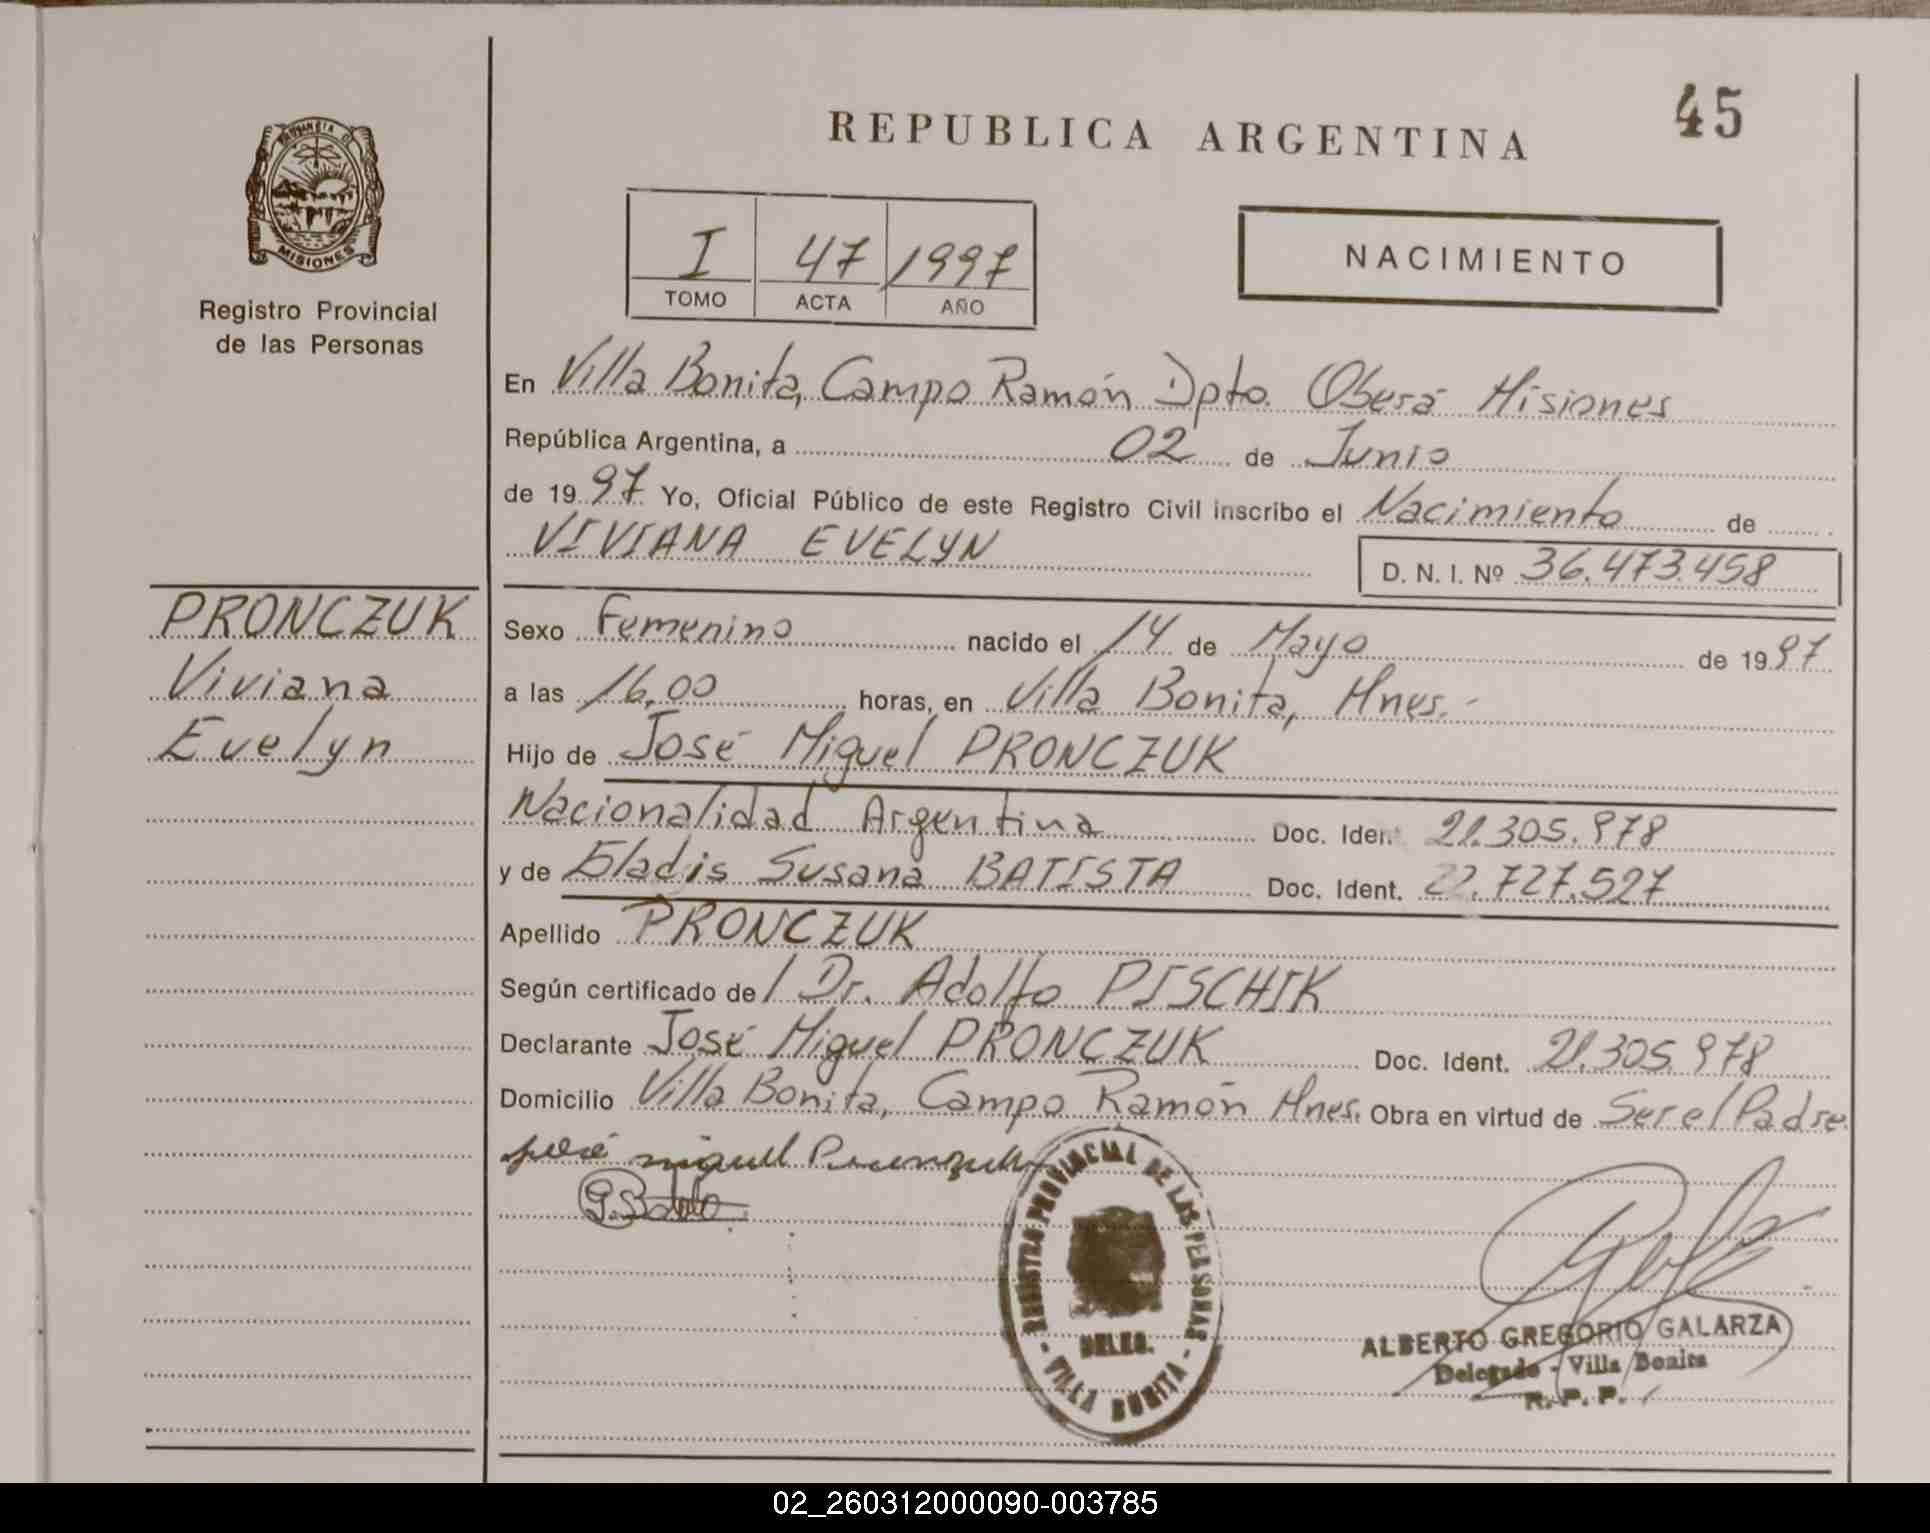 45
REPUBLICA ARGENTINA
PROVINCIA DE
MISIONES
Registro Provincial
de las Personas
I 47 1997
TOMO ACTA AÑO
NACIMIENTO
En Villa Bonita, Campo Ramón Dpto. Oberá Misiones
República Argentina, a 02 de Junio
de 1997 Yo, Oficial Público de este Registro Civil inscribo el Nacimiento de
VIVIANA EVELYN
D. N. I. Nº 36.473.458
PRONCZUK
Viviana
Evelyn
Sexo Femenino nacido el 14 de Mayo de 1997
a las 16,00 horas, en Villa Bonita, Mnes.-
Hijo de José Miguel PRONCZUK
Nacionalidad Argentina Doc. Ident. 21.305.978
y de Gladis Susana BATISTA Doc. Ident. 22.727.527
Apellido PRONCZUK
Según certificado de / Dr. Adolfo PISCHIK
Declarante José Miguel PRONCZUK Doc. Ident. 21.305.978
Domicilio Villa Bonita, Campo Ramón Mnes. Obra en virtud de Ser el Padre.
josé miguel Pronczuk
REGISTRO PROVINCIAL DE LAS PERSONAS
DELEG.
- VILLA BONITA -
ALBERTO GREGORIO GALARZA
Delegado - Villa Bonita
R. P. P.
02_260312000090-003785